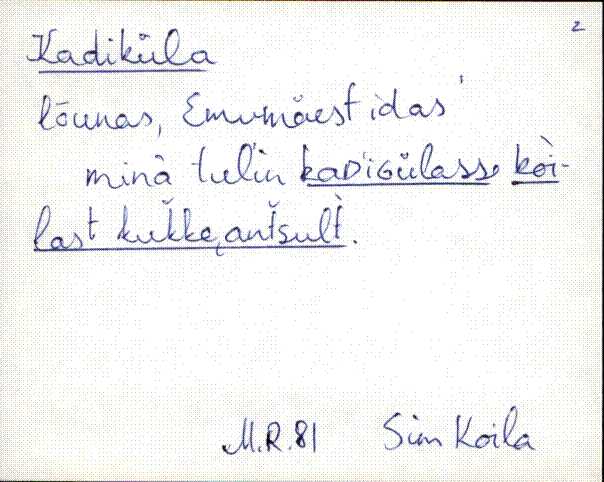 2
Kadiküla
lõunas, Emumäest idas
minà tulin kaᴅ'iɢülasse kòi-
last kukke, antsult.
M.R.81 Sim Koila